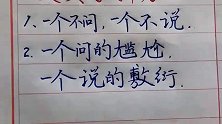 1、一个不问,一个不说.
2.一个问的尴尬
一个说的敷衍